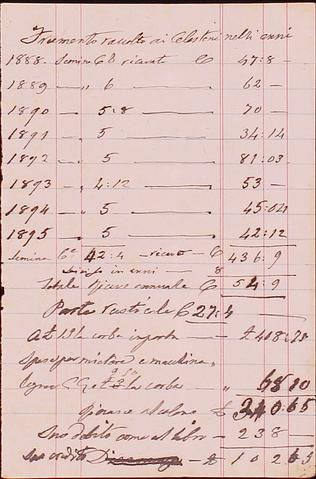 Frumento raccolto ai Celestini nelli anni
1888. Semina C 6 ricavato C 47:8
1889 — " 6 — 62 —
1890 — " 5:8 — 70 —
1891 — " 5 — 34:14
1892 — " 5 — 81:03
1893 — " 4:12 — 53 —
1894 — " 5 — 45:04
1895 — " 5 — 42:12
Semina C 42:4 — ricavo — C 436:9
in anni — 8
Totale annuale C 54:9
Parte rusticale C 27:4
A £ 15 la corba importa — £ 408:75
Spese per mietere e macchina,
la corba — " 68 10
£ 340:65
Suo debito come al libro — 238 —
Suo credito — £ 102 65